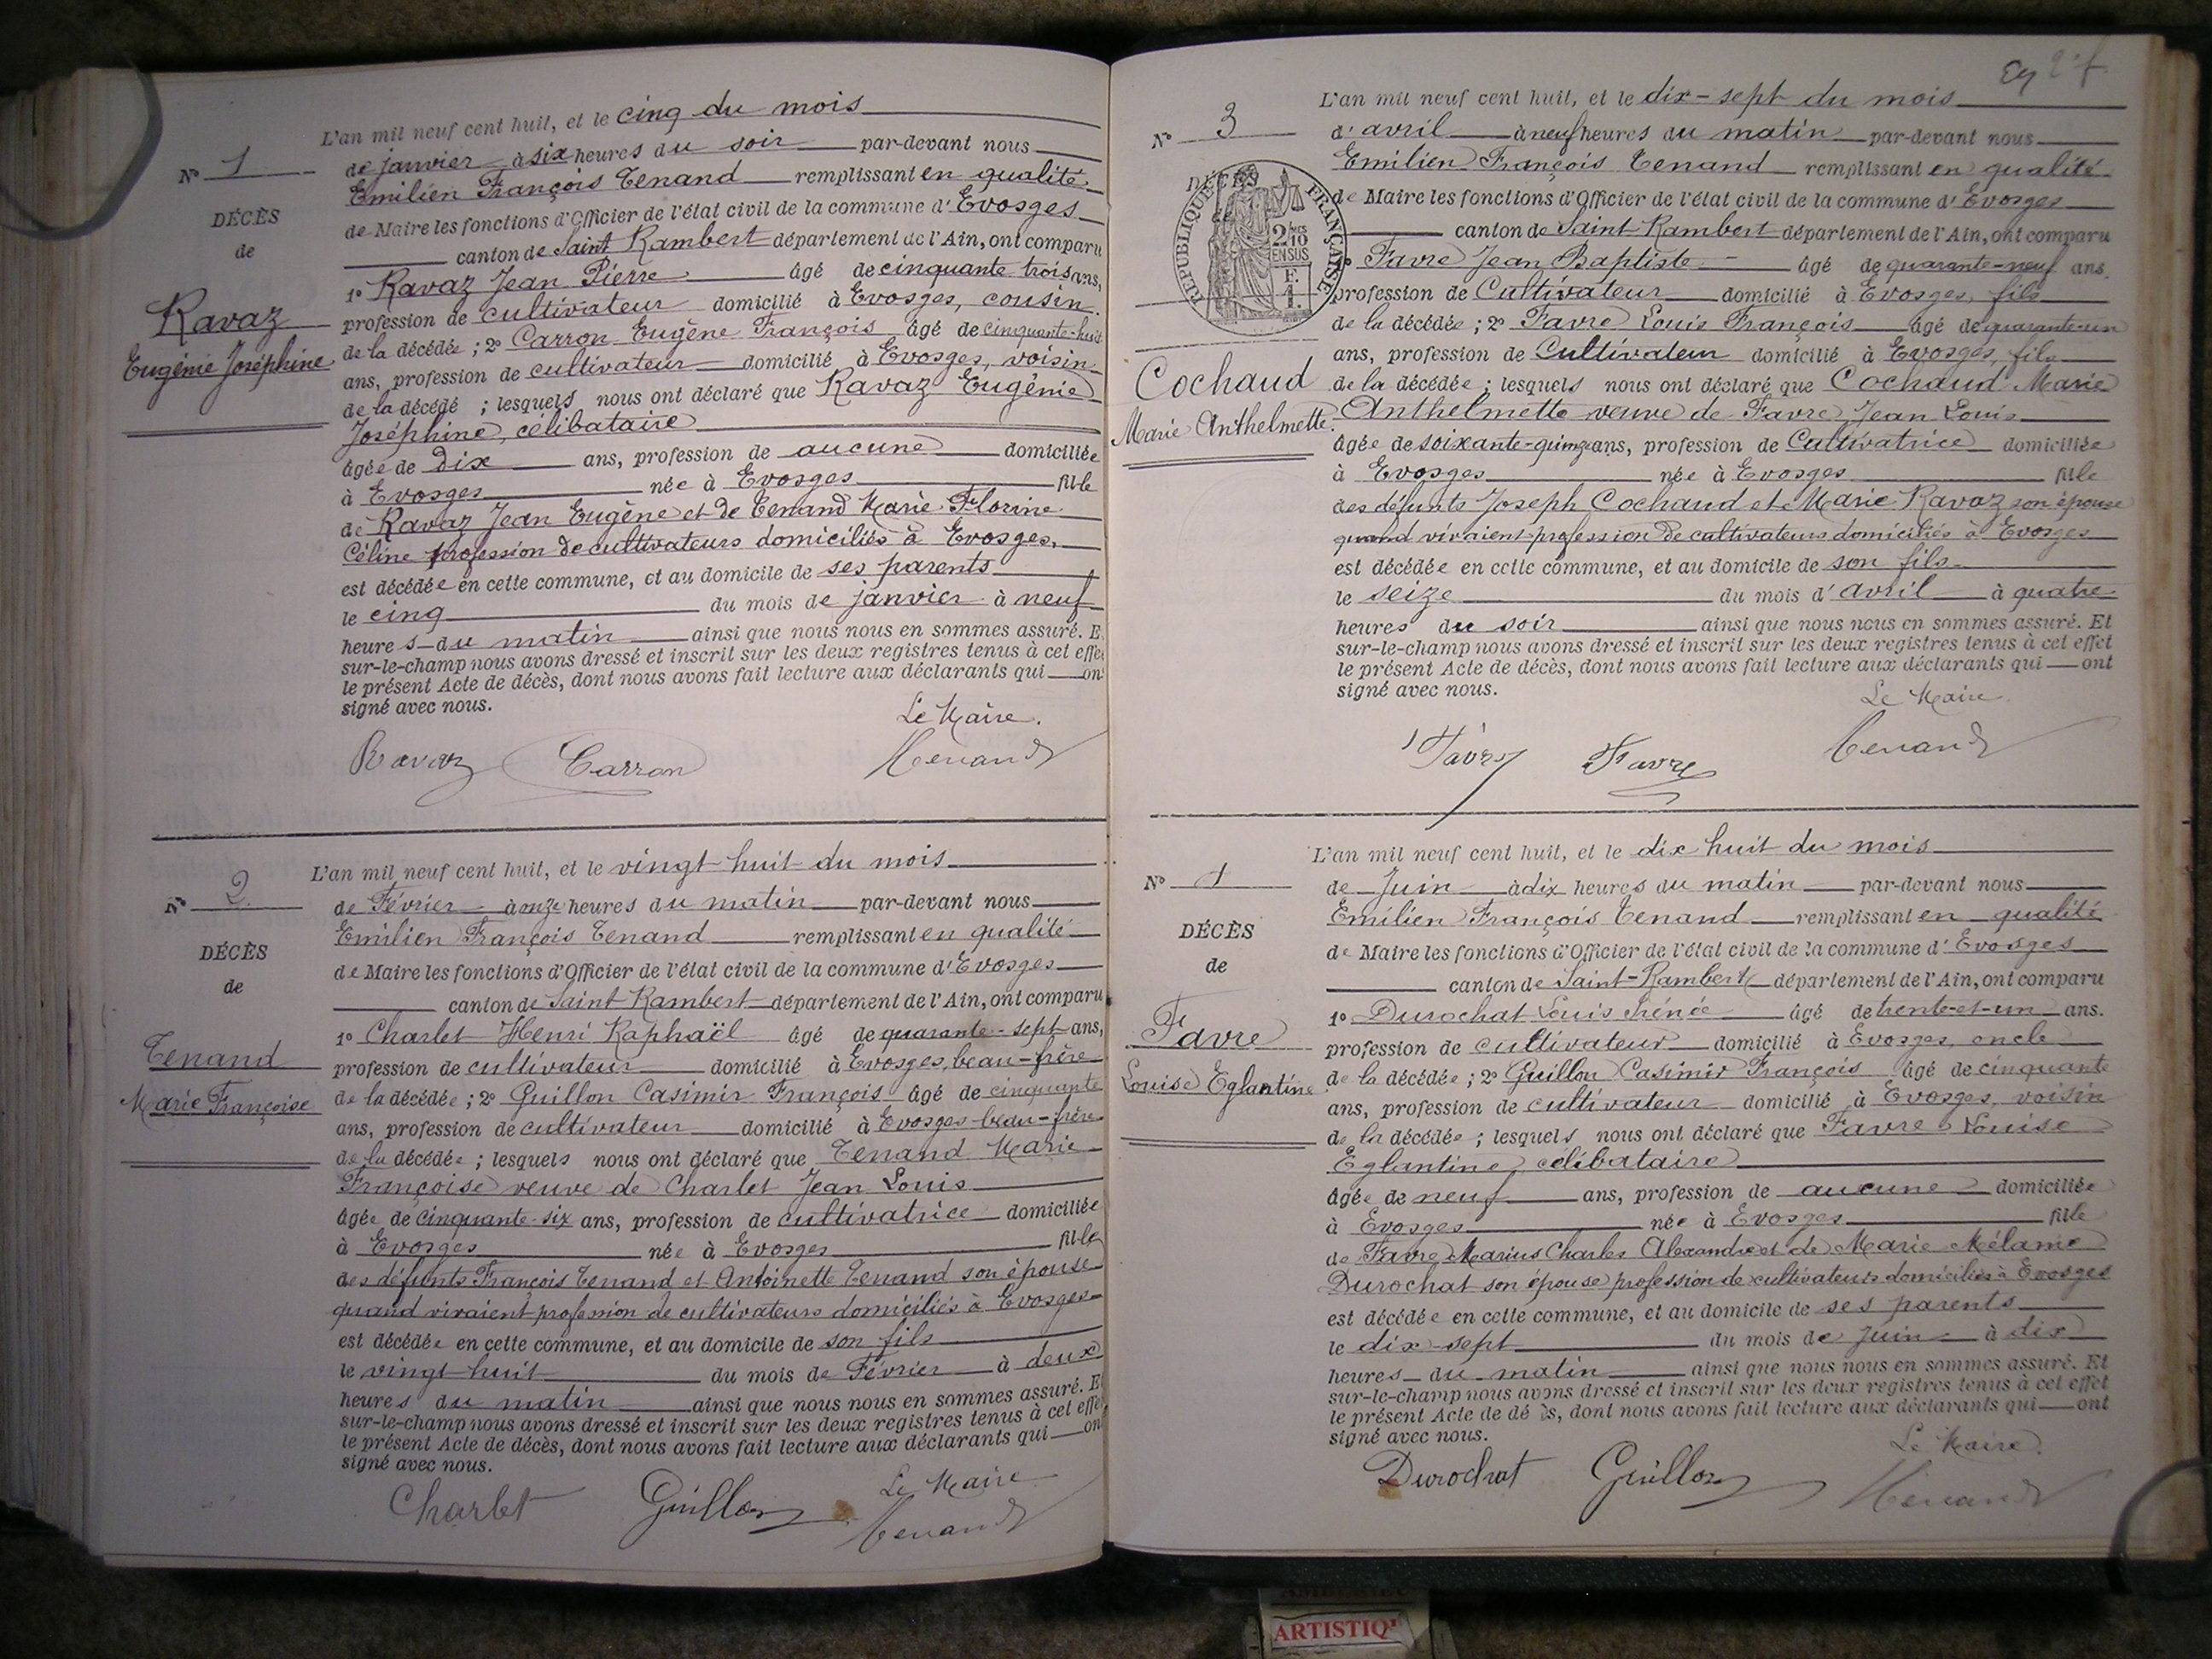 L'an mil neuf cent huit, et le cinq du mois
de janvier à six heures du soir par-devant nous
Emilien François Tenand remplissant en qualité
de Maire les fonctions d'Officier de l'état civil de la commune d'Evosges
canton de Saint Rambert département de l'Ain, ont comparu
1º Ravaz Jean Pierre âgé de cinquante trois ans,
profession de cultivateur domicilié à Evosges, cousin
de la décédée ; 2º Carron Eugène François âgé de cinquante-huit
ans, profession de cultivateur domicilié à Evosges, voisin
de la décédé ; lesquels nous ont déclaré que Ravaz Eugénie
Joséphine, célibataire
âgée de dix ans, profession de aucune domiciliée
à Evosges née à Evosges fille
de Ravaz Jean Eugène et de Tenand Marie Florine
Céline profession de cultivateurs domiciliés à Evosges,
est décédée en cette commune, et au domicile de ses parents
le cinq du mois de janvier à neuf
heures du matin ainsi que nous nous en sommes assuré. E
sur-le-champ nous avons dressé et inscrit sur les deux registres tenus à cet effe
le présent Acte de décès, dont nous avons fait lecture aux déclarants qui on
signé avec nous.
Le Maire.
Ravaz Carron Tenand
Nº 1
DÉCÈS
de
Ravaz
Eugénie Joséphine
L'an mil neuf cent huit, et le vingt huit du mois
de Février à onze heures du matin par-devant nous
Emilien François Tenand remplissant en qualité
de Maire les fonctions d'Officier de l'état civil de la commune d'Evosges
canton de Saint Rambert département de l'Ain, ont comparu
1º Charlet Henri Raphaël âgé de quarante-sept ans,
profession de cultivateur domicilié à Evosges, beau-frère
de la décédée ; 2º Guillon Casimir François âgé de cinquante
ans, profession de cultivateur domicilié à Evosges beau-frère
de la décédée ; lesquels nous ont déclaré que Tenand Marie
Françoise veuve de Charlet Jean Louis
âgée de cinquante-six ans, profession de cultivatrice domiciliée
à Evosges née à Evosges fille
des défunts François Tenand et Antoinette Tenand son épouse
quand vivaient profession de cultivateurs domiciliés à Evosges
est décédée en cette commune, et au domicile de son fils
le vingt-huit du mois de Février à deux
heures du matin ainsi que nous nous en sommes assuré. E
sur-le-champ nous avons dressé et inscrit sur les deux registres tenus à cet effe
le présent Acte de décès, dont nous avons fait lecture aux déclarants qui on
signé avec nous.
Le Maire
Charlet Guillon Tenand
Nº 2
DÉCÈS
de
Tenand
Marie Françoise
L'an mil neuf cent huit, et le dix-sept du mois
d'avril à neuf heures du matin par-devant nous
Emilien François Tenand remplissant en qualité
de Maire les fonctions d'Officier de l'état civil de la commune d'Evosges
canton de Saint Rambert département de l'Ain, ont comparu
Favre Jean Baptiste âgé de quarante-neuf ans.
profession de Cultivateur domicilié à Evosges, fils
de la décédée ; 2º Favre Louis François âgé de quarante-un
ans, profession de Cultivateur domicilié à Evosges, fils
de la décédée ; lesquels nous ont déclaré que Cochaud Marie
Anthelmette veuve de Favre Jean Louis
âgée de soixante-quinze ans, profession de Cultivatrice domiciliée
à Evosges née à Evosges fille
des défunts Joseph Cochaud et Marie Ravaz son épouse
quand vivaient profession de cultivateurs domiciliés à Evosges
est décédée en cette commune, et au domicile de son fils
le seize du mois d'avril à quatre
heures du soir ainsi que nous nous en sommes assuré. Et
sur-le-champ nous avons dressé et inscrit sur les deux registres tenus à cet effet
le présent Acte de décès, dont nous avons fait lecture aux déclarants qui ont
signé avec nous.
Le Maire.
Favre Favre Tenand
Nº 3
RÉPUBLIQUE FRANÇAISE
2/10
EN SUS
F.
1.
Cochaud
Marie Anthelmette.
L'an mil neuf cent huit, et le dix huit du mois
de Juin à dix heures du matin par-devant nous
Emilien François Tenand remplissant en qualité
de Maire les fonctions d'Officier de l'état civil de la commune d'Evosges
canton de Saint-Rambert département de l'Ain, ont comparu
1º Durochat Louis Irénée âgé de trente-et-un ans.
profession de cultivateur domicilié à Evosges, oncle
de la décédée ; 2º Guillon Casimir François âgé de cinquante
ans, profession de cultivateur domicilié à Evosges, voisin
de la décédée ; lesquels nous ont déclaré que Favre Louise
Eglantine célibataire
âgée de neuf ans, profession de aucune domiciliée
à Evosges née à Evosges fille
de Favre Marius Charles Alexandre et de Marie Mélanie
Durochat son épouse profession de cultivateurs domiciliés à Evosges
est décédée en cette commune, et au domicile de ses parents
le dix-sept du mois de Juin à dix
heures du matin ainsi que nous nous en sommes assuré. Et
sur-le-champ nous avons dressé et inscrit sur les deux registres tenus à cet effet
le présent Acte de dé ès, dont nous avons fait lecture aux déclarants qui ont
signé avec nous.
Le Maire.
Durochat Guillon Tenand
Nº 4
DÉCÈS
de
Favre
Louise Eglantine
ARTISTIQ